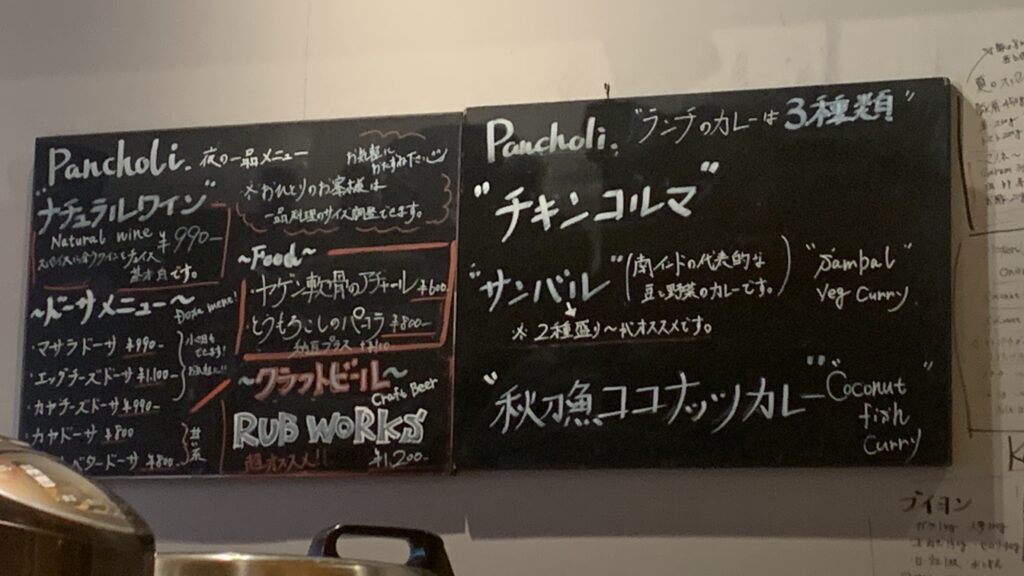 Pancholi. 夜の一品メニュー
お気軽に
おたずね下さい
"ナチュラルワイン"
Natural wine ¥990-
スパイスに合うワインをチョイス
基本白です。
※おひとりのお客様は
一品料理のサイズ調整できます。
~ドーサメニュー~
Dosa menu!
・マサラドーサ ¥990-
・エッグチーズドーサ ¥1,100-
・カヤチーズドーサ ¥990-
・カヤドーサ ¥800
バタードーサ ¥800-
甘い系
~Food~
・ヤゲン軟骨のアチャール ¥600
・とうもろこしのパコラ ¥800-
~クラフトビール~
Craft Beer
RUB WORKS
超オススメ!!
¥1,200-
Pancholi. "ランチのカレーは3種類"
"チキンコルマ"
"サンバル" (南インドの代表的な
豆と野菜のカレーです。)
"Sambal"
Veg Curry
※2種盛り~がオススメです。
"秋刀魚ココナッツカレー"
Coconut
fish
curry
ブイヨン